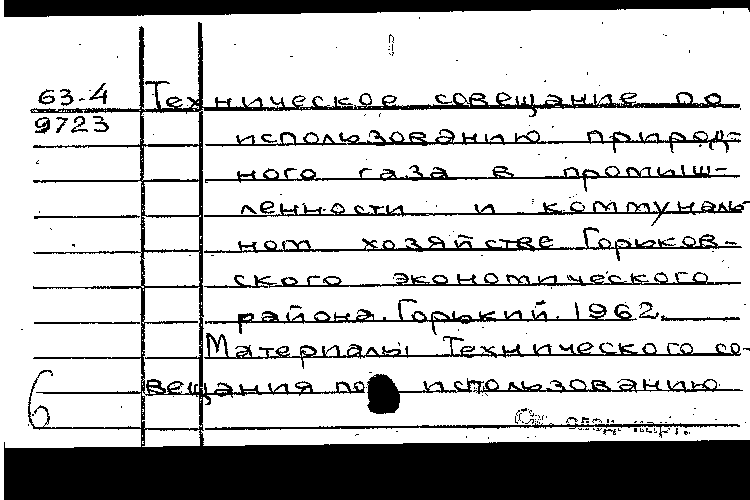 63-4 Техническое совещание по
9723
использованию природ-
ного газа в промыш-
ленности и коммуналь
ном хозяйстве Горьков-
ского экономического
района. Горький. 1962.
Материалы Технического со-
вещания по использованию
6
См. след. карт.